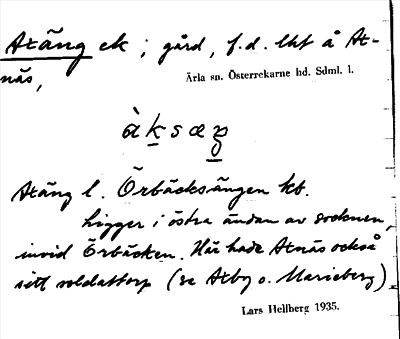 Atäng ek ; gård, f.d. lht å At-
näs,
Ärla sn. Österrekarne hd. Sdml. l.
àksæŋ
Atäng l. Örbäcksängen kt.
Ligger i östra ändan av socknen,
invid Örbäcken. Här hade Atnäs också
sitt soldattorp (se Atby o. Marieberg)
Lars Hellberg 1935.